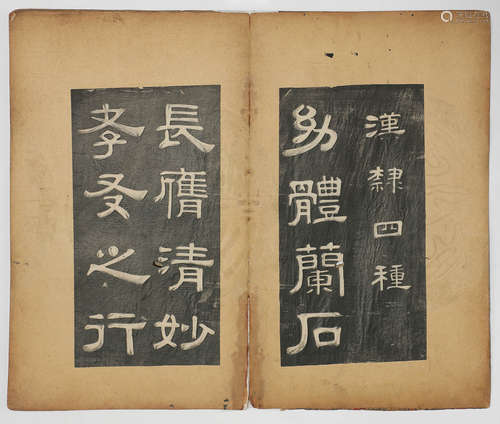 漢隸四種
幼體蘭石
長膺清妙
孝友之行